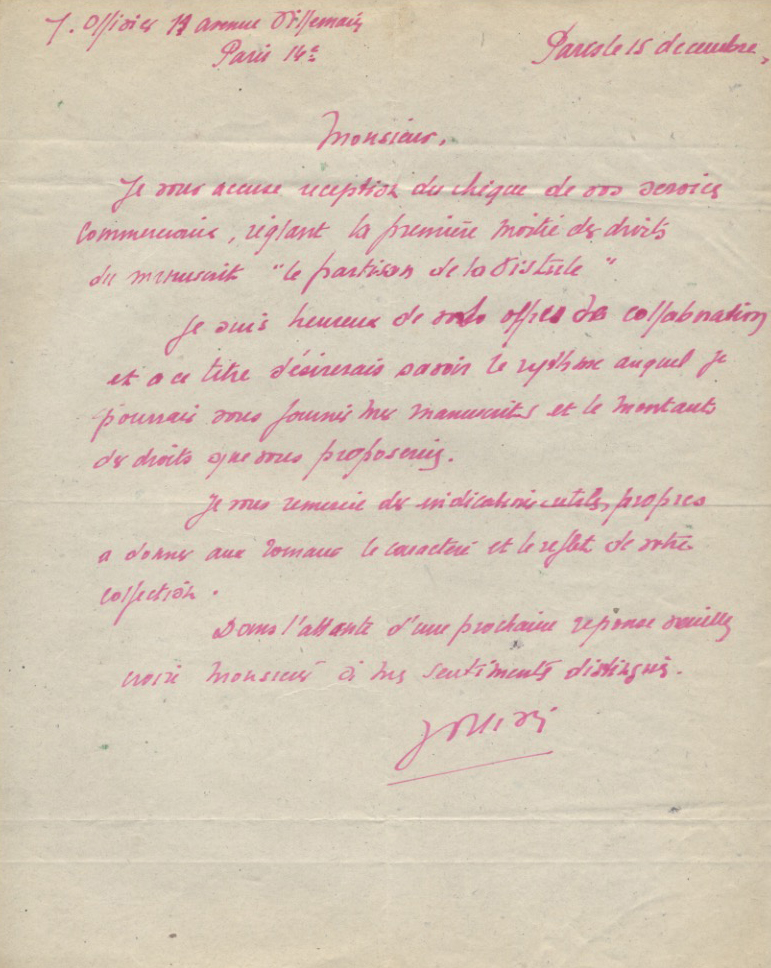 J. Ollivier 19 avenue Villemain
Paris 14e
Paris le 15 decembre,
Monsieur,
Je vous accuse reception du chèque de vos services
commerciaux, réglant la première moitié des droits
du manuscrit "le partisan de la Vistule"
Je suis heureux de offres de collaboration
et a ce titre désirerais savoir le rythme auquel je
pourrais vous fournir mes manuscrits et le montants
des droits que vous proposeriez.
Je vous remercie des indications utiles, propres
a donner aux romans le caractère et le reflet de votre
collection.
Dans l'attente d'une prochaine reponse veuillez
croire Monsieur à mes sentiments distingués.